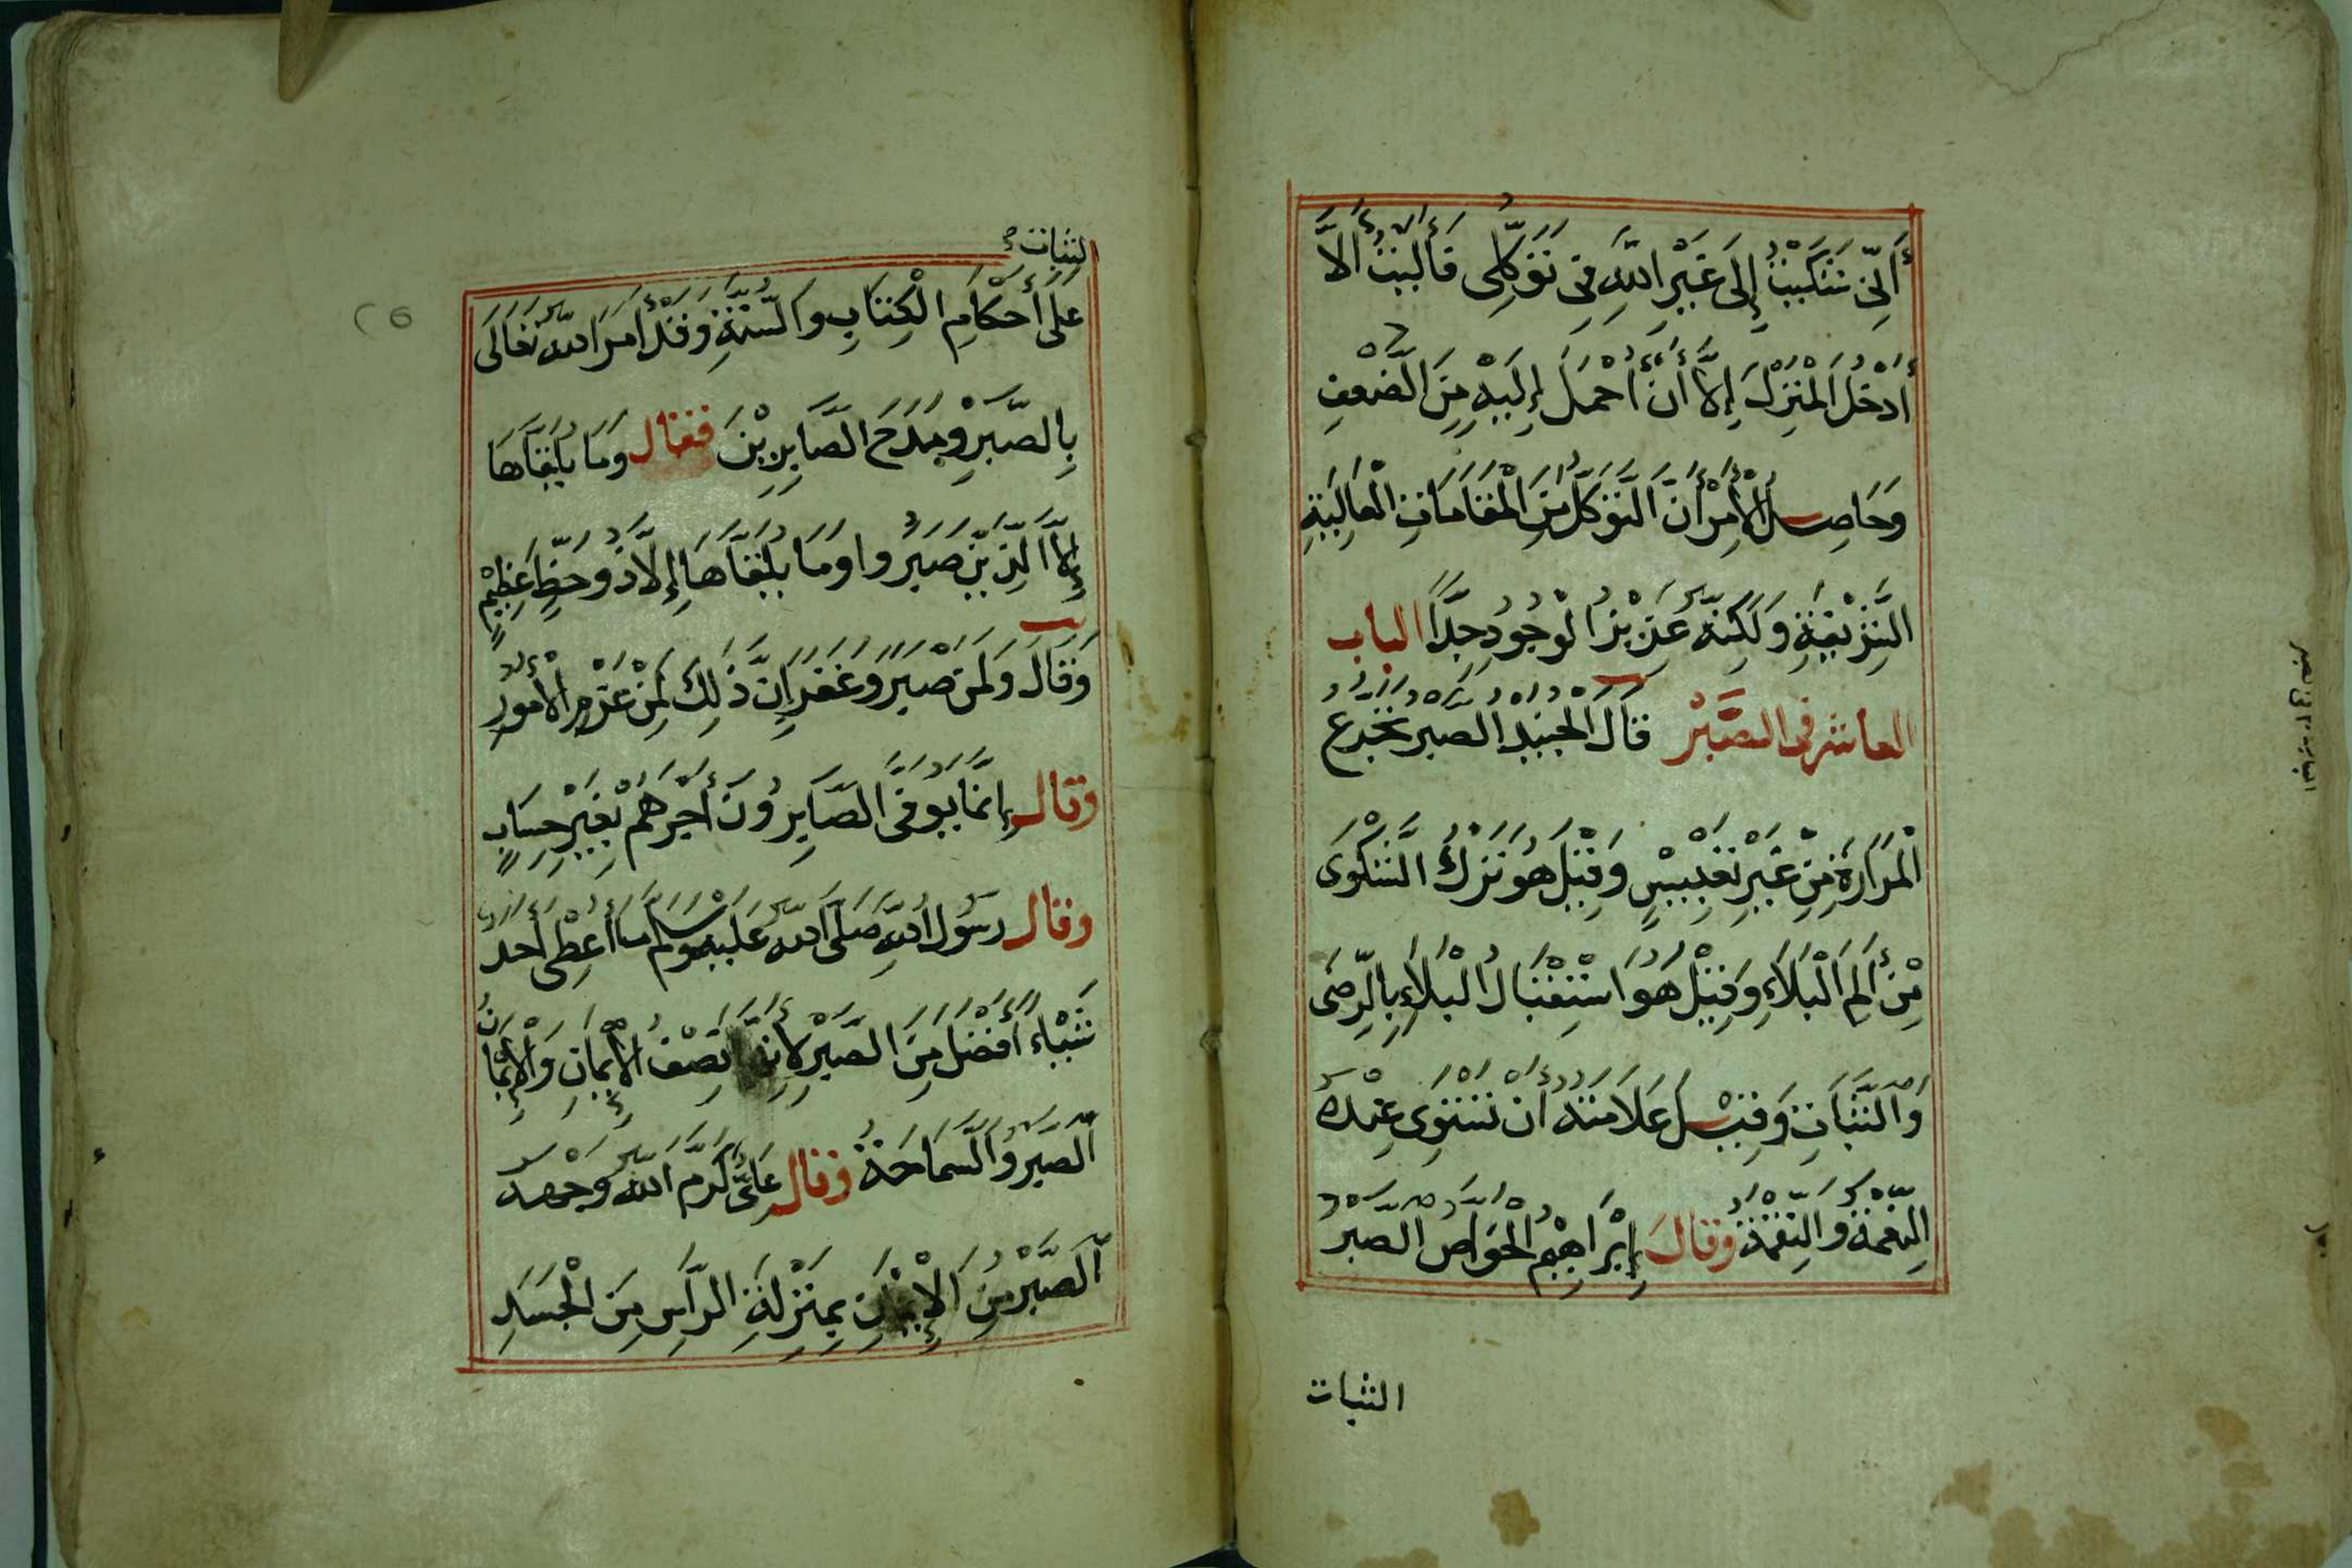 أَنِّي شَكَيْتُ إِلَى غَيْرِ اللَّهِ فِي تَوَكُّلِي فَآلَيْتُ أَلَّا
أَدْخُلَ الْمَنْزِلَ إِلَّا أَنْ أَحْمَلَ إِلَيْهِ مِنَ الضَّعْفِ
وَحَاصِلُ الْأَمْرِ أَنَّ التَّوَكُّلَ مِنَ الْمَقَامَاتِ الْعَالِيَةِ
الشَّرِيفَةِ وَلَكِنَّهُ عَزِيْزُ الْوُجُودِ جِدًّا الباب
العاشر فى الصَّبْرُ قَالَ الْجُنَيْدُ الصَّبْرُ تَجَرُّعُ
الْمَرَارَةِ مِنْ غَيْرِ تَعْبِيسٍ وَقِيْلَ هُوَ تَرْكُ الشَّكْوَى
مِنْ أَلَمِ الْبَلَاءِ وَقِيْلَ هُوَ اسْتِقْبَالُ الْبَلَاءِ بِالرِّضَى
وَالثَّبَاتِ وَقِيْلَ عَلَامَتُهُ أَنْ تَسْتَوِيَ عِنْدَهُ
النِّعْمَةُ وَالنِّقْمَةُ وَقَالَ إِبْرَاهِيْمُ الْخَوَّاصُ الصَّبْرُ
الثبات
لثبات
عَلَى أَحْكَامِ الْكِتَابِ وَالسُّنَّةِ وَقَدْ أَمَرَ اللَّهُ تَعَالَى
بِالصَّبْرِ وَمَدَحَ الصَّابِرِيْنَ فقال وَمَا يُلَقَّاهَا
إِلَّا الَّذِيْنَ صَبَرُوا وَمَا يُلَقَّاهَا إِلَّا ذُو حَظٍّ عَظِيْمٍ
وَقَالَ وَلَمَنْ صَبَرَ وَغَفَرَ إِنَّ ذَلِكَ لَمِنْ عَزْمِ الْأُمُورِ
وقال إِنَّمَا يُوَفَّى الصَّابِرُونَ أَجْرَهُمْ بِغَيْرِ حِسَابٍ
وقال رَسُولُ اللَّهِ صَلَّى اللَّهُ عَلَيْهِ وَسَلَّمَ مَا أُعْطِيَ أَحَدٌ
شَيْئًا أَفْضَلَ مِنَ الصَّبْرِ لِأَنَّهُ نِصْفُ الْإِيمَانِ وَالْإِيمَانُ
الصَّبْرُ وَالسَّمَاحَةُ وقال عَلِيٌّ كَرَّمَ اللَّهُ وَجْهَهُ
الصَّبْرُ مِنَ الْإِيْمَانِ بِمَنْزِلَةِ الرَّأْسِ مِنَ الْجَسَدِ